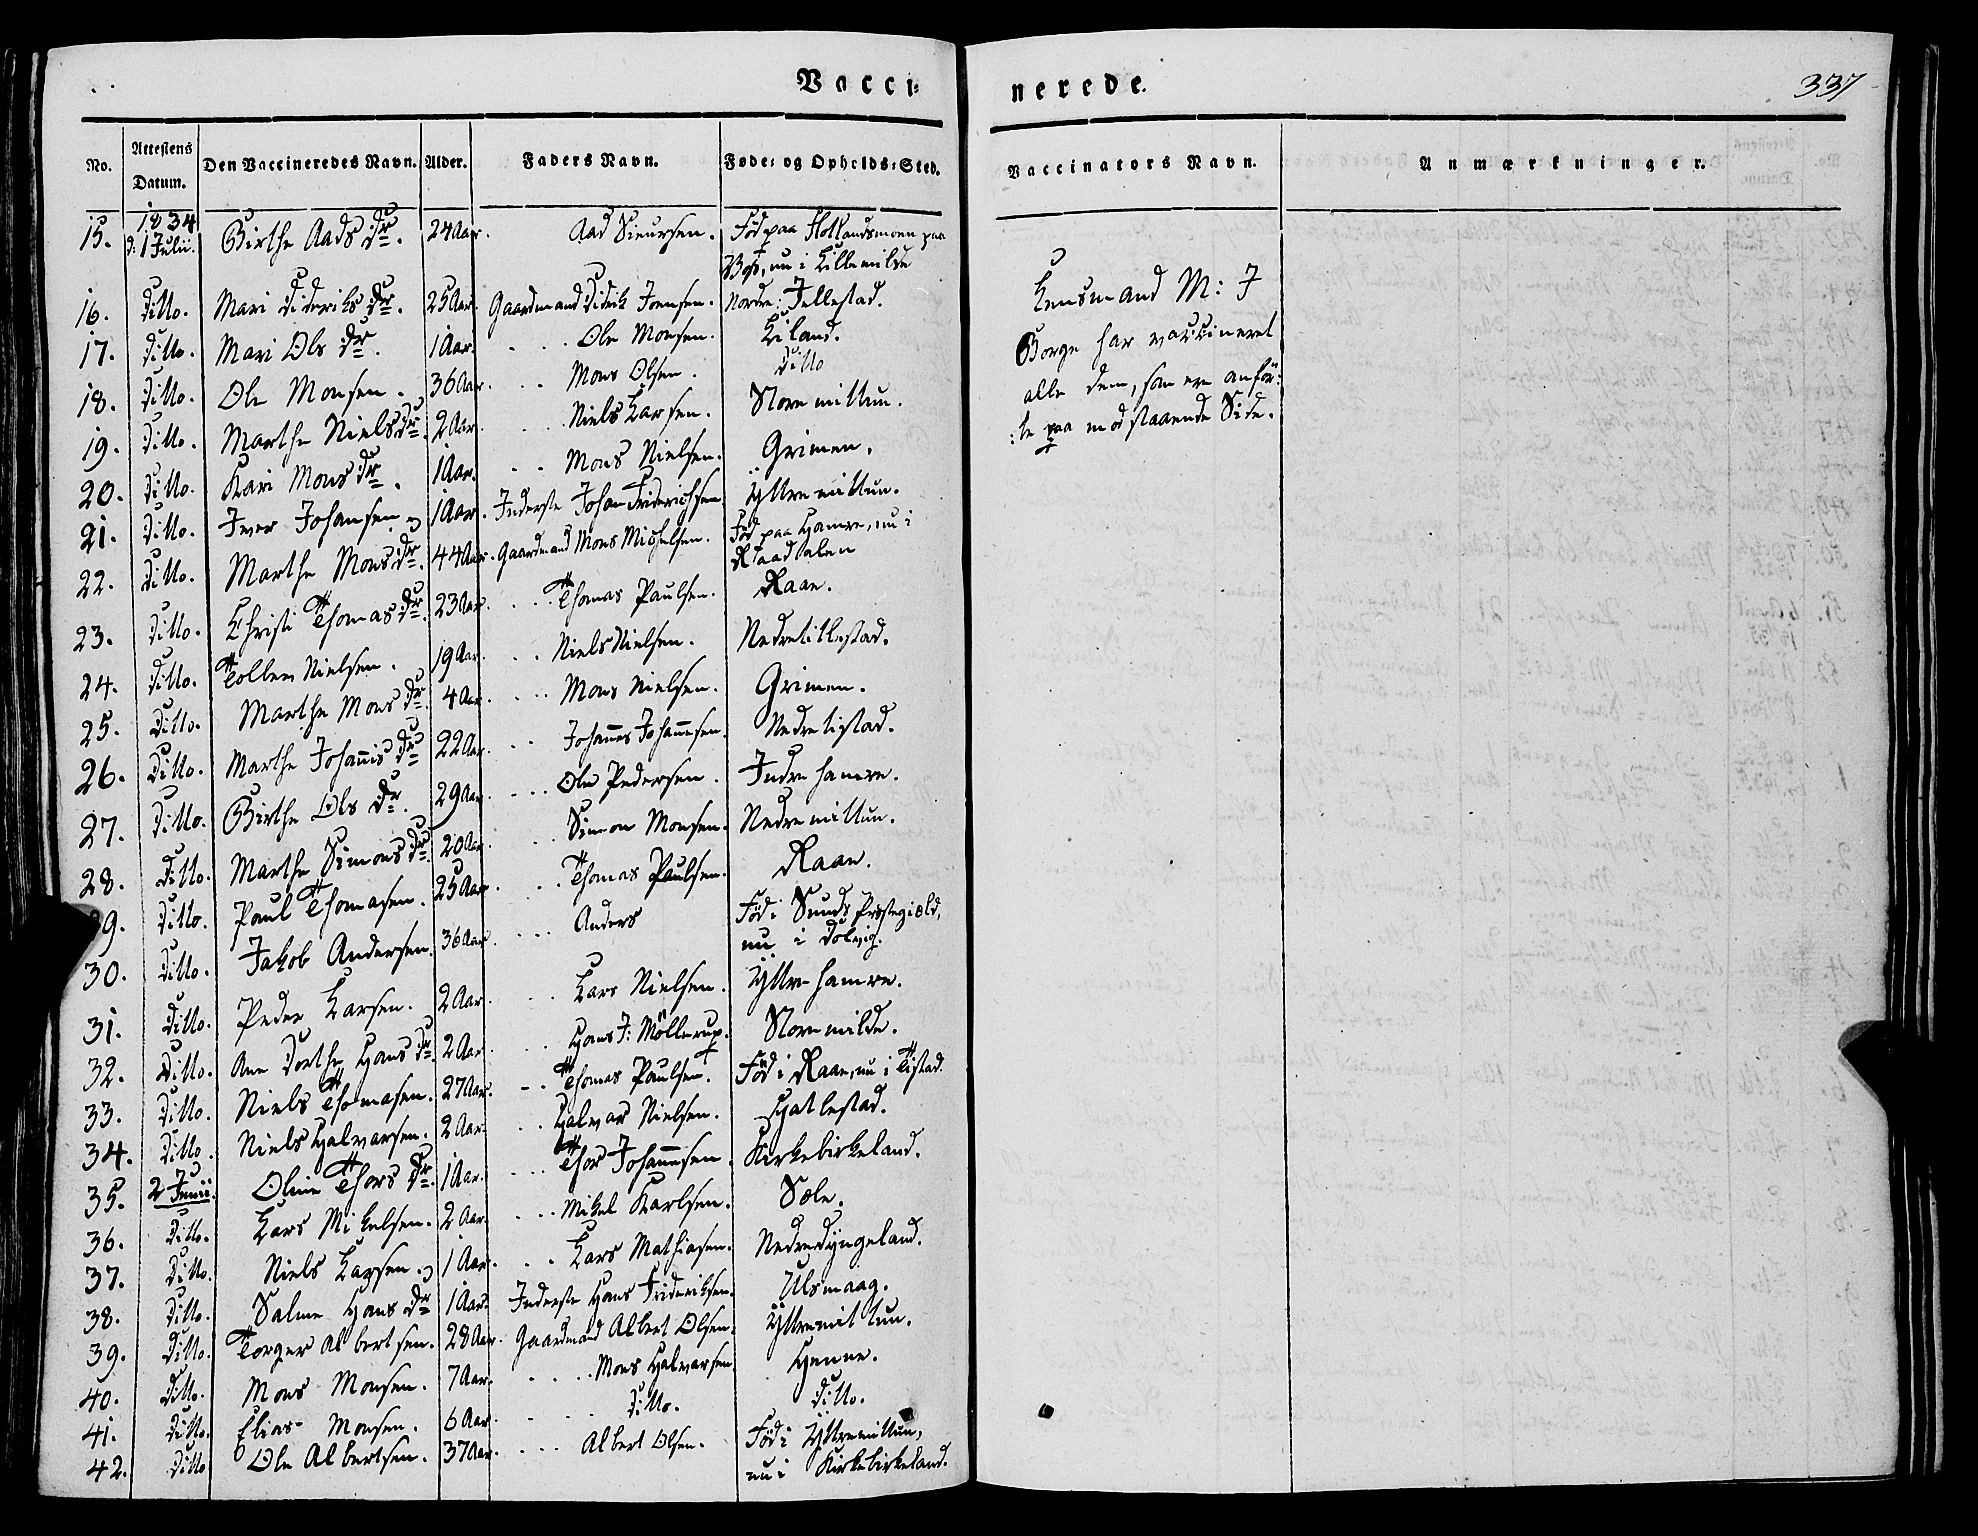 Vacci=
nerede.
337
No. Attestens Datum. Den Vaccineredes Navn. Alder. Faders Navn. Føde= og Opholds=Sted.
Vaccinators Navn. Anmærkninger.
15. 1834 d: 1 Julii. Birthe Aads Dr. 24 Aar. Aad Sieursen. Fød paa Hollandsmoen paa
Voss, nu i Lillemilde
16. Ditto. Mari Dideriks Dr. 25 Aar. Gaardmand Didrik Joensen. Nordre: Jellestad.
17. Ditto. Mari Ols Dr. 1 Aar. . . . Ole Monsen. Liland.
18. Ditto. Ole Monsen. 36 Aar. . . Mons Olsen. Ditto
19. Ditto. Marthe Niels Dr. 2 Aar. . . . Niels Larsen. Storemittun.
20. Ditto. Kari Mons Dr. 1 Aar. . . Mons Nielsen. Grimen.
21. Ditto. Iver Johansen 1 Aar. Inderste Johan Friderichsen Yttremittun.
22. Ditto. Marthe Mons Dr. 44 Aar. Gaardmand Mons Michelsen. Fød paa Hamre, nu i
Raadalen
23. Ditto. Christi Thomas Dr. 23 Aar. . . . Thomas Paulsen. Raae.
24. Ditto. Tollev Nielsen. 19 Aar. . . Niels Nielsen. Nedretitlestad.
25. Ditto. Marthe Mons Dr. 4 Aar. . . . Mons Nielsen. Grimen.
26. Ditto. Marthe Johannis Dr 22 Aar. . . Johannes Johannesen. Nedretistad.
27. Ditto. Birthe Ols Dr. 29 Aar. . . . Ole Pedersen. Indrehamre.
28. Ditto. Marthe Simons Dr. 20 Aar. . . Simon Monsen. Nedremittun.
29. Ditto. Paul Thomasen. 25 Aar. . . . Thomas Paulsen. Raae.
30. Ditto. Jakob Andersen. 36 Aar. . . . Anders Fød i Sunds Præstegiæld,
nu i Dolvig.
31. Ditto. Peder Larsen. 2 Aar. . . . Lars Nielsen. Yttrehamre.
32. Ditto. Ane Dorthe Hans Dr. 2 Aar. . . . Hans J: Möllerup. Storemilde.
33. Ditto. Niels Thomasen. 27 Aar. . . Thomas Paulsen. Fød i Raae, nu i Tistad.
34. Ditto. Niels Halvarsen. 2 Aar. . . Halvar Nielsen. Hatlestad.
35. 2 Junii. Oline Thors Dr. 1 Aar. . . . Thor Johannesen. Kirkebirkeland.
36. Ditto. Lars Mikelsen. 2 Aar. . . . Mikel Karlsen. Sæle.
37. Ditto. Niels Larsen. 1 Aar. . . Lars Mathiasen. Nedredyngeland.
38. Ditto. Salme Hans Dr 1 Aar. Inderste Hans Frideriksen. Ulsmaag.
39. Ditto. Torger Albertsen. 28 Aar. Gaardmand Albert Olsen. Yttremittun.
40. Ditto. Mons Monsen. 7 Aar. . . . . . Mons Halvarsen Henne.
41. Ditto. Elias Monsen. 6 Aar. . . . Ditto. Ditto.
42. Ditto Ole Albertsen. 37 Aar. . . . Albert Olsen. Fød i Yttremittun,
nu i Kirkebirkeland.
Lensmand M: J
Borge har vaccineret
alle dem, som ere anför:
:te paa modstaaende Side.